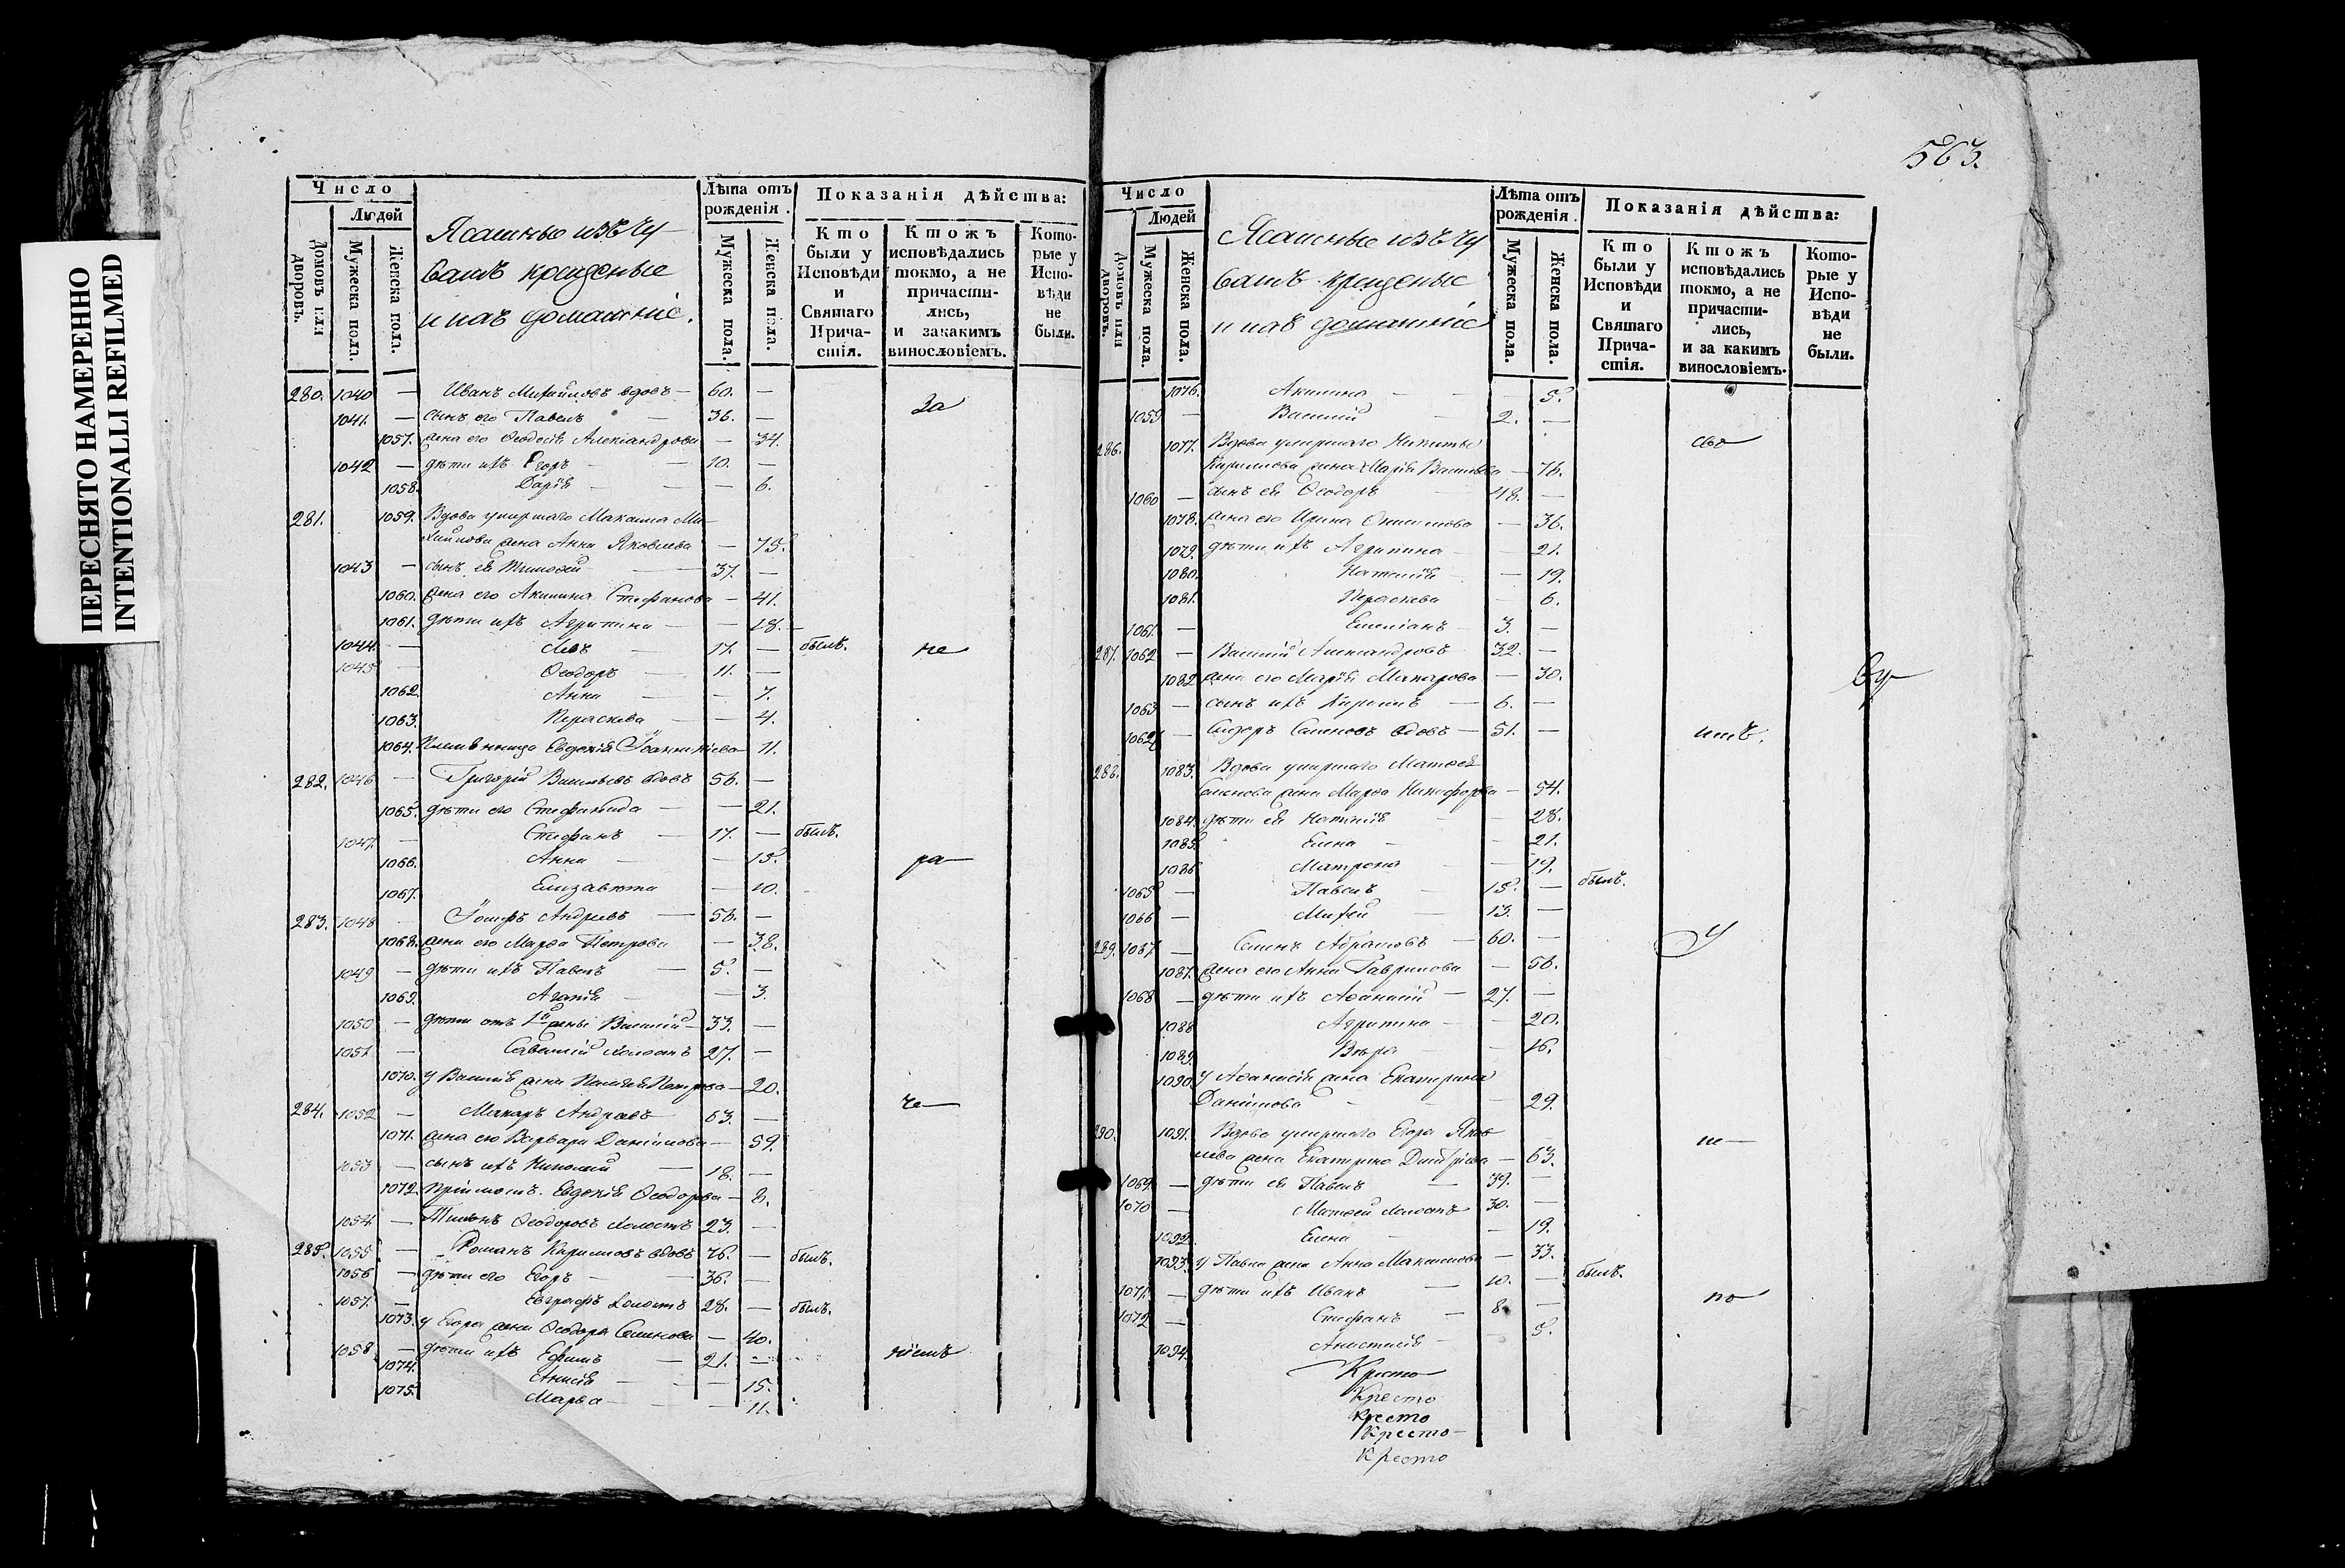 ПЕРЕСНЯТО НАМЕРЕННО
INTENTIONALLI REFILMED
Число
Людей
Домовъ или дворовъ.
Мужеска пола.
Женска пола.
Ясашные изъ Чу
вашъ крещеные
и ихъ домашніе.
Лѣта отъ рожденія.
Мужеска пола.
Женска пола.
Показанія дѣйства:
Кто были у Исповѣди и Святаго Причастія.
Ктожъ исповѣдались токмо, а не причастились, и закакимъ винословіемъ.
Которые у Исповѣди не были.
280. 1040 — Иванъ Михайловъ вдовъ — 60. —
За
1041. — сынъ его Павелъ — 36. —
1057. жена его Ѳеодосія Александрова — 34.
1042 — дѣти ихъ Егоръ — 10. —
1058. Дарія — — 6.
281. 1059. Вдова умершаго Максима Ми
хайлова жена Анна Яковлева — 75.
1043 — сынъ ея Тимоѳей — 37. —
1060. жена его Акилина Стефанова — 41.
1061. дѣти ихъ Агрипина — — 18.
1044. — Левъ — 17. — былъ. не
1045 — Ѳеодоръ — 11. —
1062. Анна — — 7.
1063. Параскева — — 4.
1064. Племянница Евдокія 11.
282. 1046 — Григорій Васильевъ вдовъ 56. —
1065. дѣти его Стефанида — — 21.
1047. — Стефанъ — 17. — былъ.
1066. Анна — — 15. ра—
1067. Елизавета — 10.
283. 1048 — Іосифъ Андреевъ — 56. —
1068. жена его Марѳа Петрова — 38.
1049 — дѣти ихъ Павелъ — 5. —
1069. Агафія — — 3.
1050 — дѣти отъ 1й жены Василій — 33. —
1051 — Савелій холостъ 27. —
1070. у Василія жена Петрова — 20.
284. 1052 — Макаръ Андреевъ 63. — че—
1071. жена его Варвара Даніилова — 59.
1053 — сынъ ихъ Николай — 18. —
1072. Евдокія Ѳеодорова — 8.
1054. — Ѳеодоровъ холостъ 23. —
285. 1055 — Романъ Кириловъ вдовъ 76. — былъ.
1056 — дѣти его Егоръ — 36. —
1057. — Евграфъ холостъ 28. — былъ.
1073. у Егора жена Ѳеодора Семенова — 40.
1058 — дѣти ихъ Ефимъ — 21. — ніемъ
1074. Анисія — — 15.
1075. Марѳа — — 11.
563.
Число
Людей
Домовъ или дворовъ.
Мужеска пола.
Женска пола.
Ясашные изъ Чу
вашъ крещеные
и ихъ домашніе
Лѣта отъ рожденія.
Мужеска пола.
Женска пола.
Показанія дѣйства:
Кто были у Исповѣди и Святаго Причастія.
Ктожъ исповѣдались токмо, а не причастились, и за какимъ винословіемъ.
Которые у Исповѣди не были.
1076. Акилина — — 5.
1059 Василій — 2. —
286. 1077. Вдова умершаго Никиты сво
Кирилова жена Марія Васильева — 76.
1060 — сынъ ея Ѳеодоръ 48. —
1078. жена его Ирина Онисимова — 36.
1079. дѣти ихъ Агрипина — — 21.
1080. Наталія — 19.
1081. Параскева — 6.
1061. — Емеліанъ — 3. —
287. 1062 — Василій Александровъ 32. —
1082 жена его Марія Макарова — 30.
1063 — сынъ ихъ Кирилъ — 6. —
1064 — Сидоръ Семеновъ вдовъ — 51. — имъ.
288. 1083. Вдова умершаго Матѳея
Семенова жена Марѳа Никифорова — 54.
1084. дѣти ея Наталія — — 28.
1085. Елена — — 21.
1086 Матрона — 19.
1065 — Павелъ — 15. — былъ.
1066 — Михей — 13. —
289. 1067. — Семенъ Абрамовъ — 60. — У
1087. жена его Анна Гаврилова — 56.
1068 — дѣти ихъ Аѳанасій — 27. —
1088 Агрипина — — 20.
1089. Вѣра — — 16.
1090 у Аѳанасія жена Екатерина
Даніилова — — 29.
290. 1091. Вдова умершаго Егора Яков
лева жена Екатерина Дмитріева — 63.
1069. — дѣти ея Павелъ — 39. —
1070 — Матѳей холостъ 30. —
1092. Елена — — 19.
1093. у Павла жена Анна Максимова — 33.
1071. — дѣти ихъ Иванъ 10. — былъ. по
1072 — Стефанъ — 8. —
1094. Анастасія — 5.
Кресто
Кресто
Кресто
Кресто—
Кресто